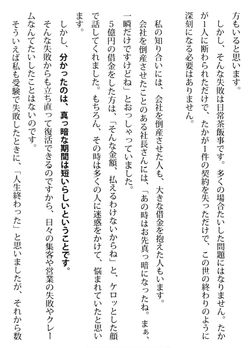 方もいると思います。
　しかし、そんな失敗は日常茶飯事です。多くの場合たいした問題にはなりません。たか
が１人に断わられただけで、たかが１件の契約を失っただけで、この世の終わりのように
深刻になる必要はありません。
　私の知り合いには、会社を倒産させた人も、大きな借金を抱えた人もいます。
　会社を倒産させたことのある社長さんには、「あの時はお先真っ暗になったね。まぁ、
一瞬だけですけどね」とおっしゃっていました。
　５億円の借金をした方は「そんな金額、払えるわけないからね」と、ケロッとした顔
で話してくれました。もちろん、その時は多くの人に迷惑をかけて、悩まれていたと思い
ます。
　しかし、分かったのは、真っ暗な期間は短いらしいということです。
　そんな失敗からも立ち直って復活できるのですから、日々の集客や営業の失敗やクレー
ムなんてたいしたことはないのです。
　そういえば私も受験で失敗したときに、「人生終わった」と思いましたが、それから数